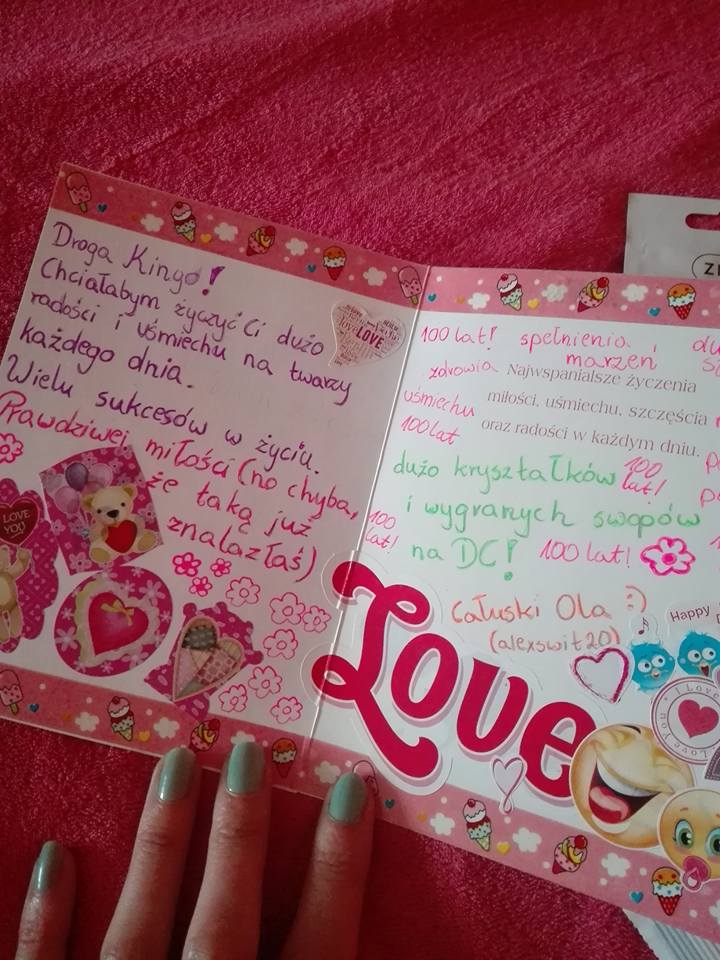 Droga Kingo!
Chciałabym życzyć Ci dużo
radości i uśmiechu na twarzy
każdego dnia.
Wielu sukcesów w życiu.
Prawdziwej miłości (no chyba,
że taką już
znalazłaś)
LOVE
LOVE
YOU
100 lat! spełnienia i
marzeń
zdrowia
Najwspanialsze życzenia
uśmiechu
miłości, uśmiechu, szczęścia
100 lat
oraz radości w każdym dniu.
dużo kryształków
100
lat!
i wygranych swopów
100
lat!
na DC!
100 lat!
całuski Ola :)
(alexswit20)
Love
Happy
I Love You